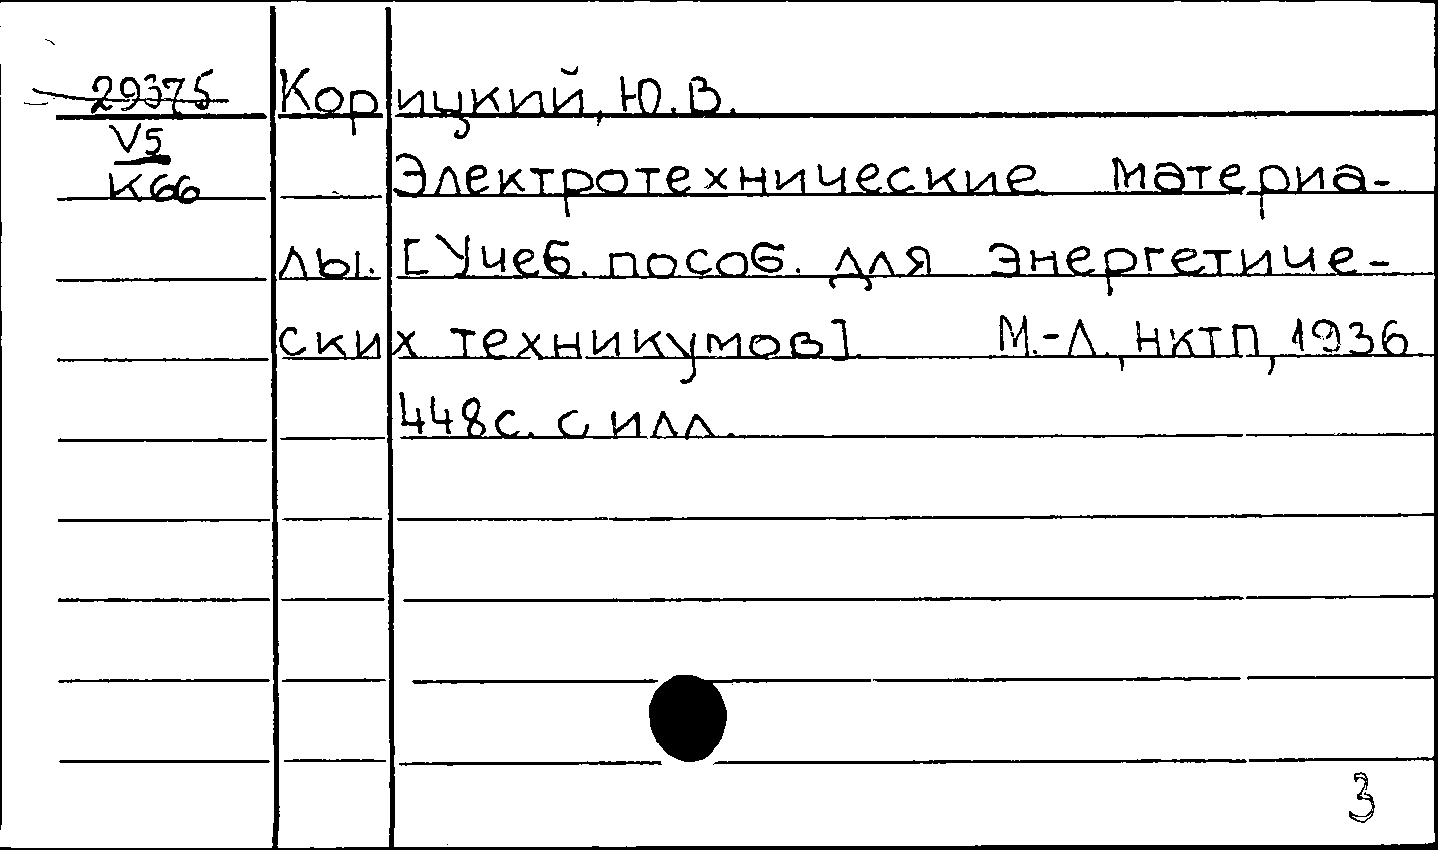 29375 Корицкий, Ю.В.
V5
К66 Электротехнические материа-
лы. [Учеб. пособ. для энергетиче-
ских техникумов]. М.-Л., НКТП, 1936
448с. с илл.
3